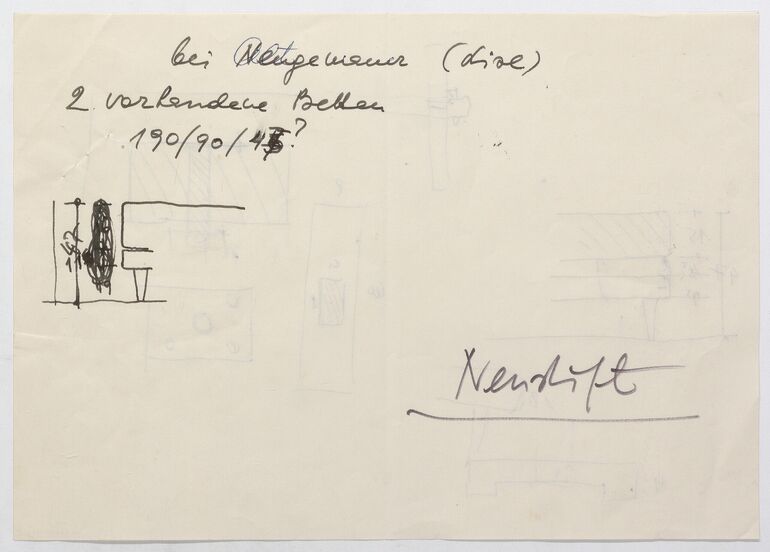 bei (Lise)
2 vorhandene Betten
190/90/45?
42
Neustift